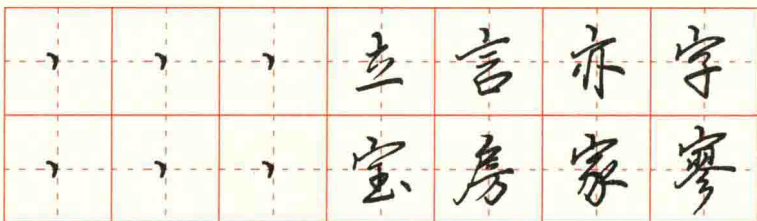 丶丶丶立言亦字
丶丶丶宝房家寥